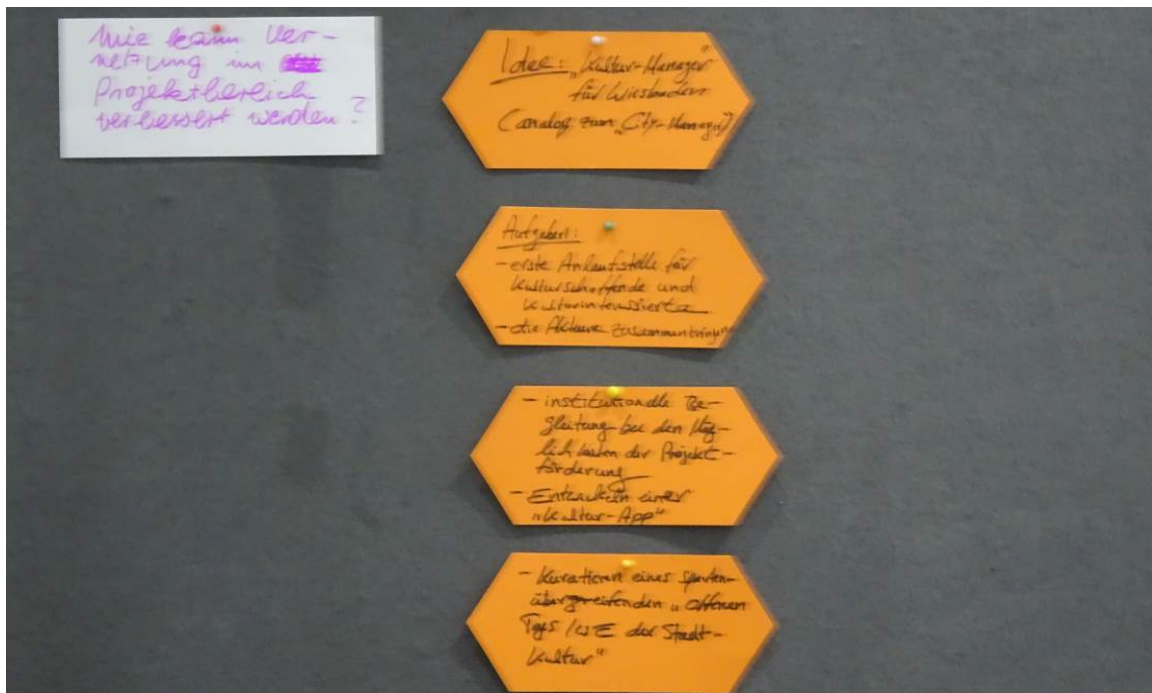 Wie kann Ver-
netzung im
Projektbereich
verbessert werden?
Idee: „Kultur-Manager"
für Wiesbaden
(analog zum „City-Manager")
Aufgaben:
- erste Anlaufstelle für
Kulturschaffende und
Kulturinteressierte
- die Akteure zusammenbringen
- institutionelle Be-
gleitung bei den Mög-
lichkeiten der Projekt-
förderung
- Entwickeln einer
„Kultur-App"
- Kuratieren eines sparten-
übergreifenden „Offenen
Tags / WE der Stadt-
kultur"